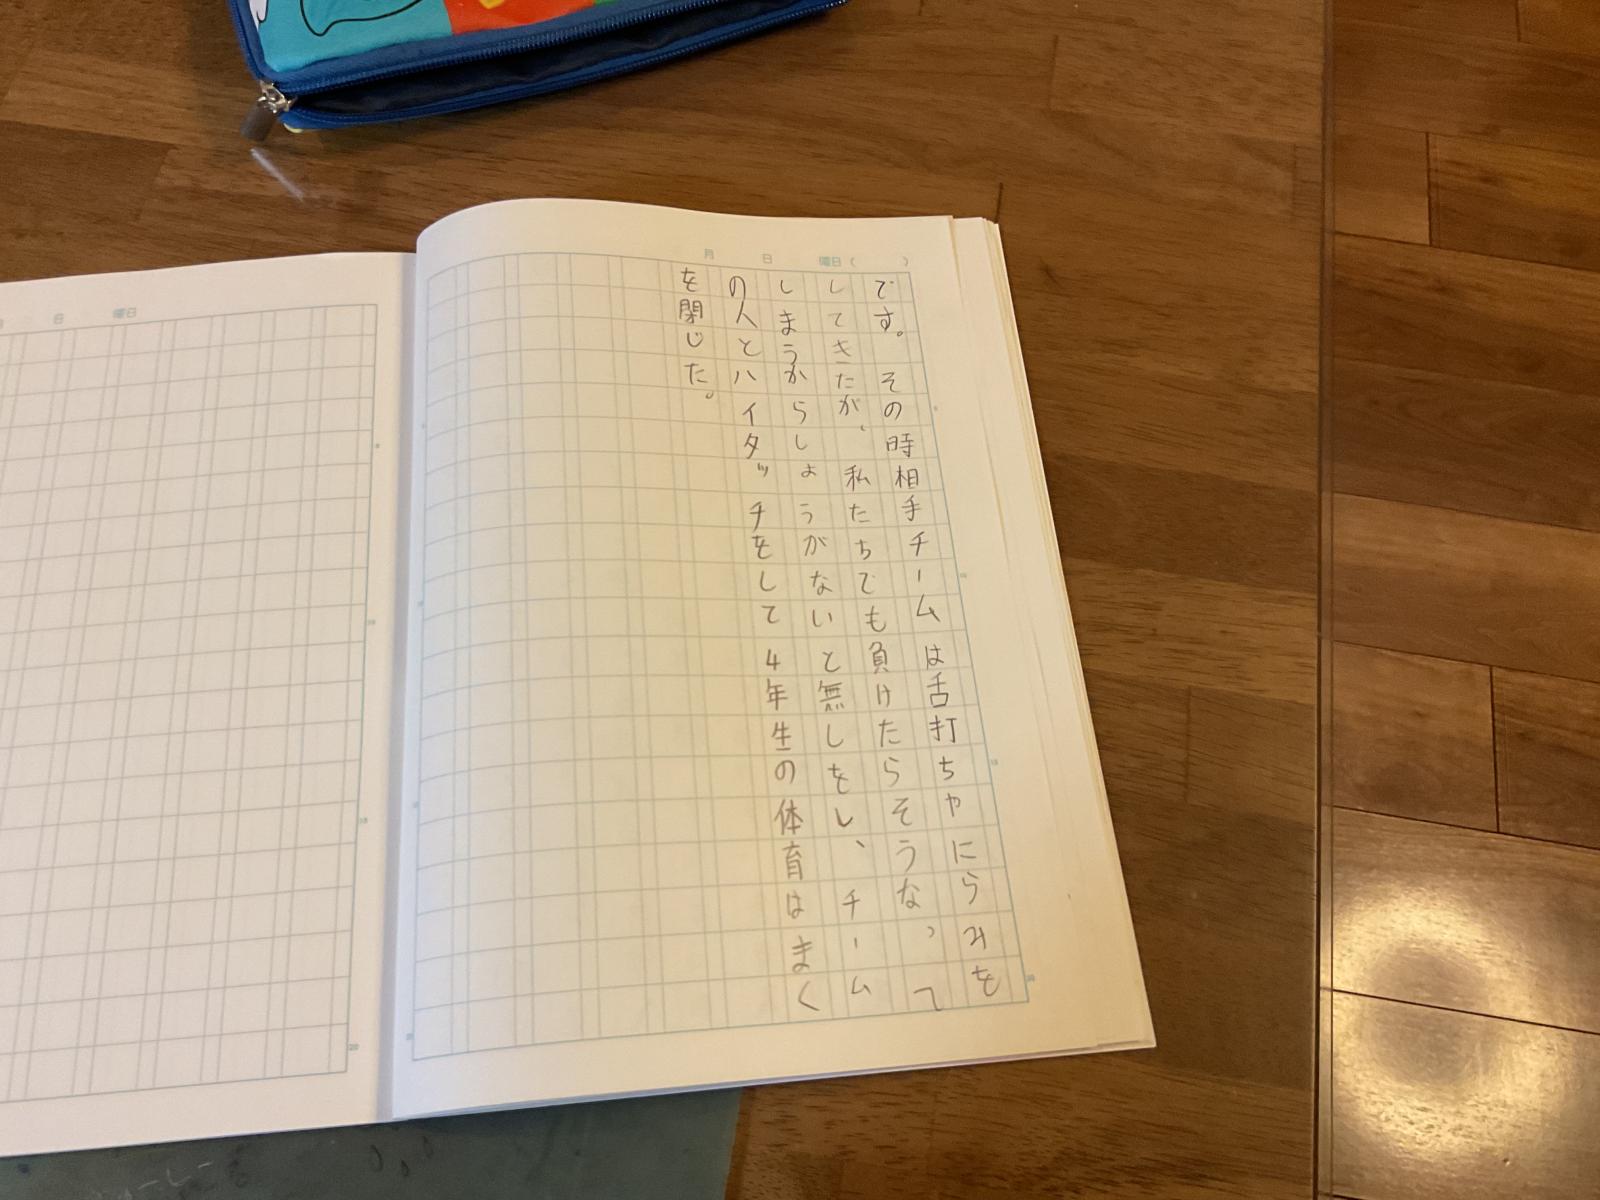 月　日　曜日（　）
です。その時相手チームは舌打ちやにらみを
してきたが、私たちでも負けたらそうなって
しまうからしょうがないと無しをし、チーム
の人とハイタッチをして4年生の体育はまく
を閉じた。
日　曜日